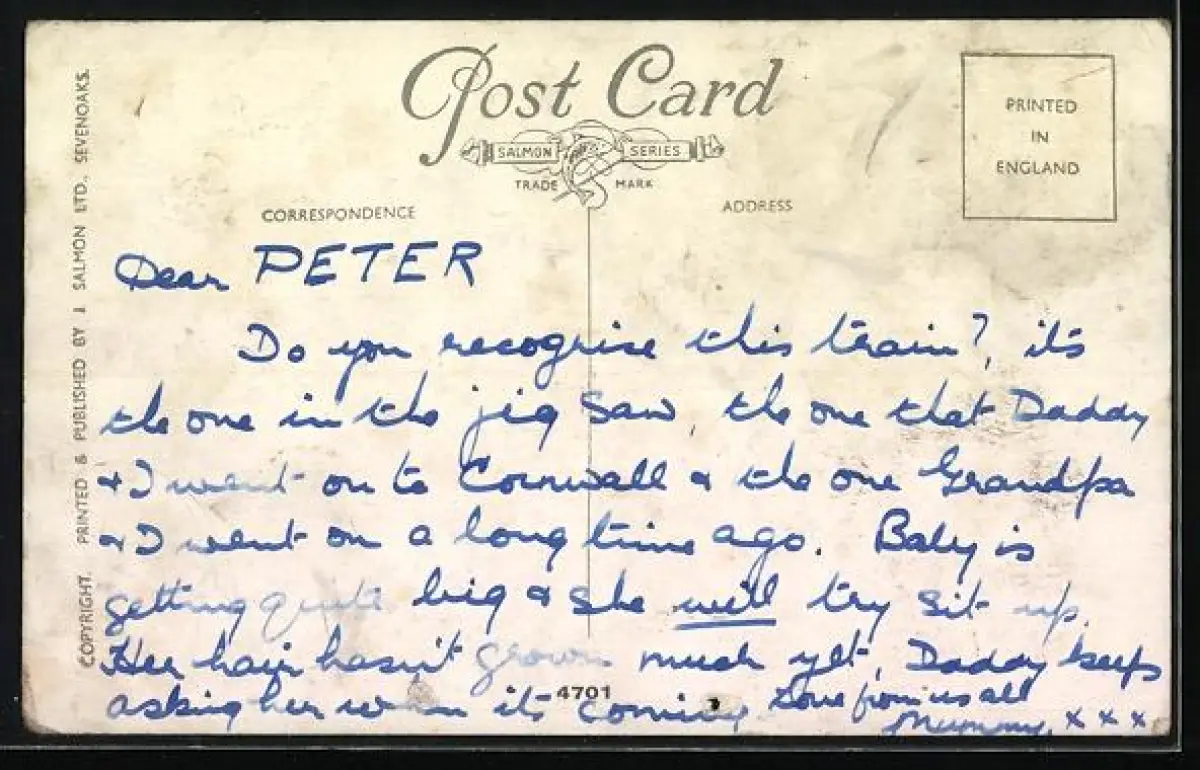 Post Card
SALMON SERIES
TRADE MARK
PRINTED
IN
ENGLAND
CORRESPONDENCE
ADDRESS
COPYRIGHT. PRINTED & PUBLISHED BY J SALMON LTD., SEVENOAKS.
Dear PETER
Do you recognise this train?, it's
the one in the jig saw, the one that Daddy
& I went on to Cornwall & the one Grandpa
& I went on a long time ago. Baby is
getting quite big & she will try sit up.
Her hair hasn't grown much yet, Daddy keeps
asking her when it's coming Love from us all
Mummy. x x x
4701